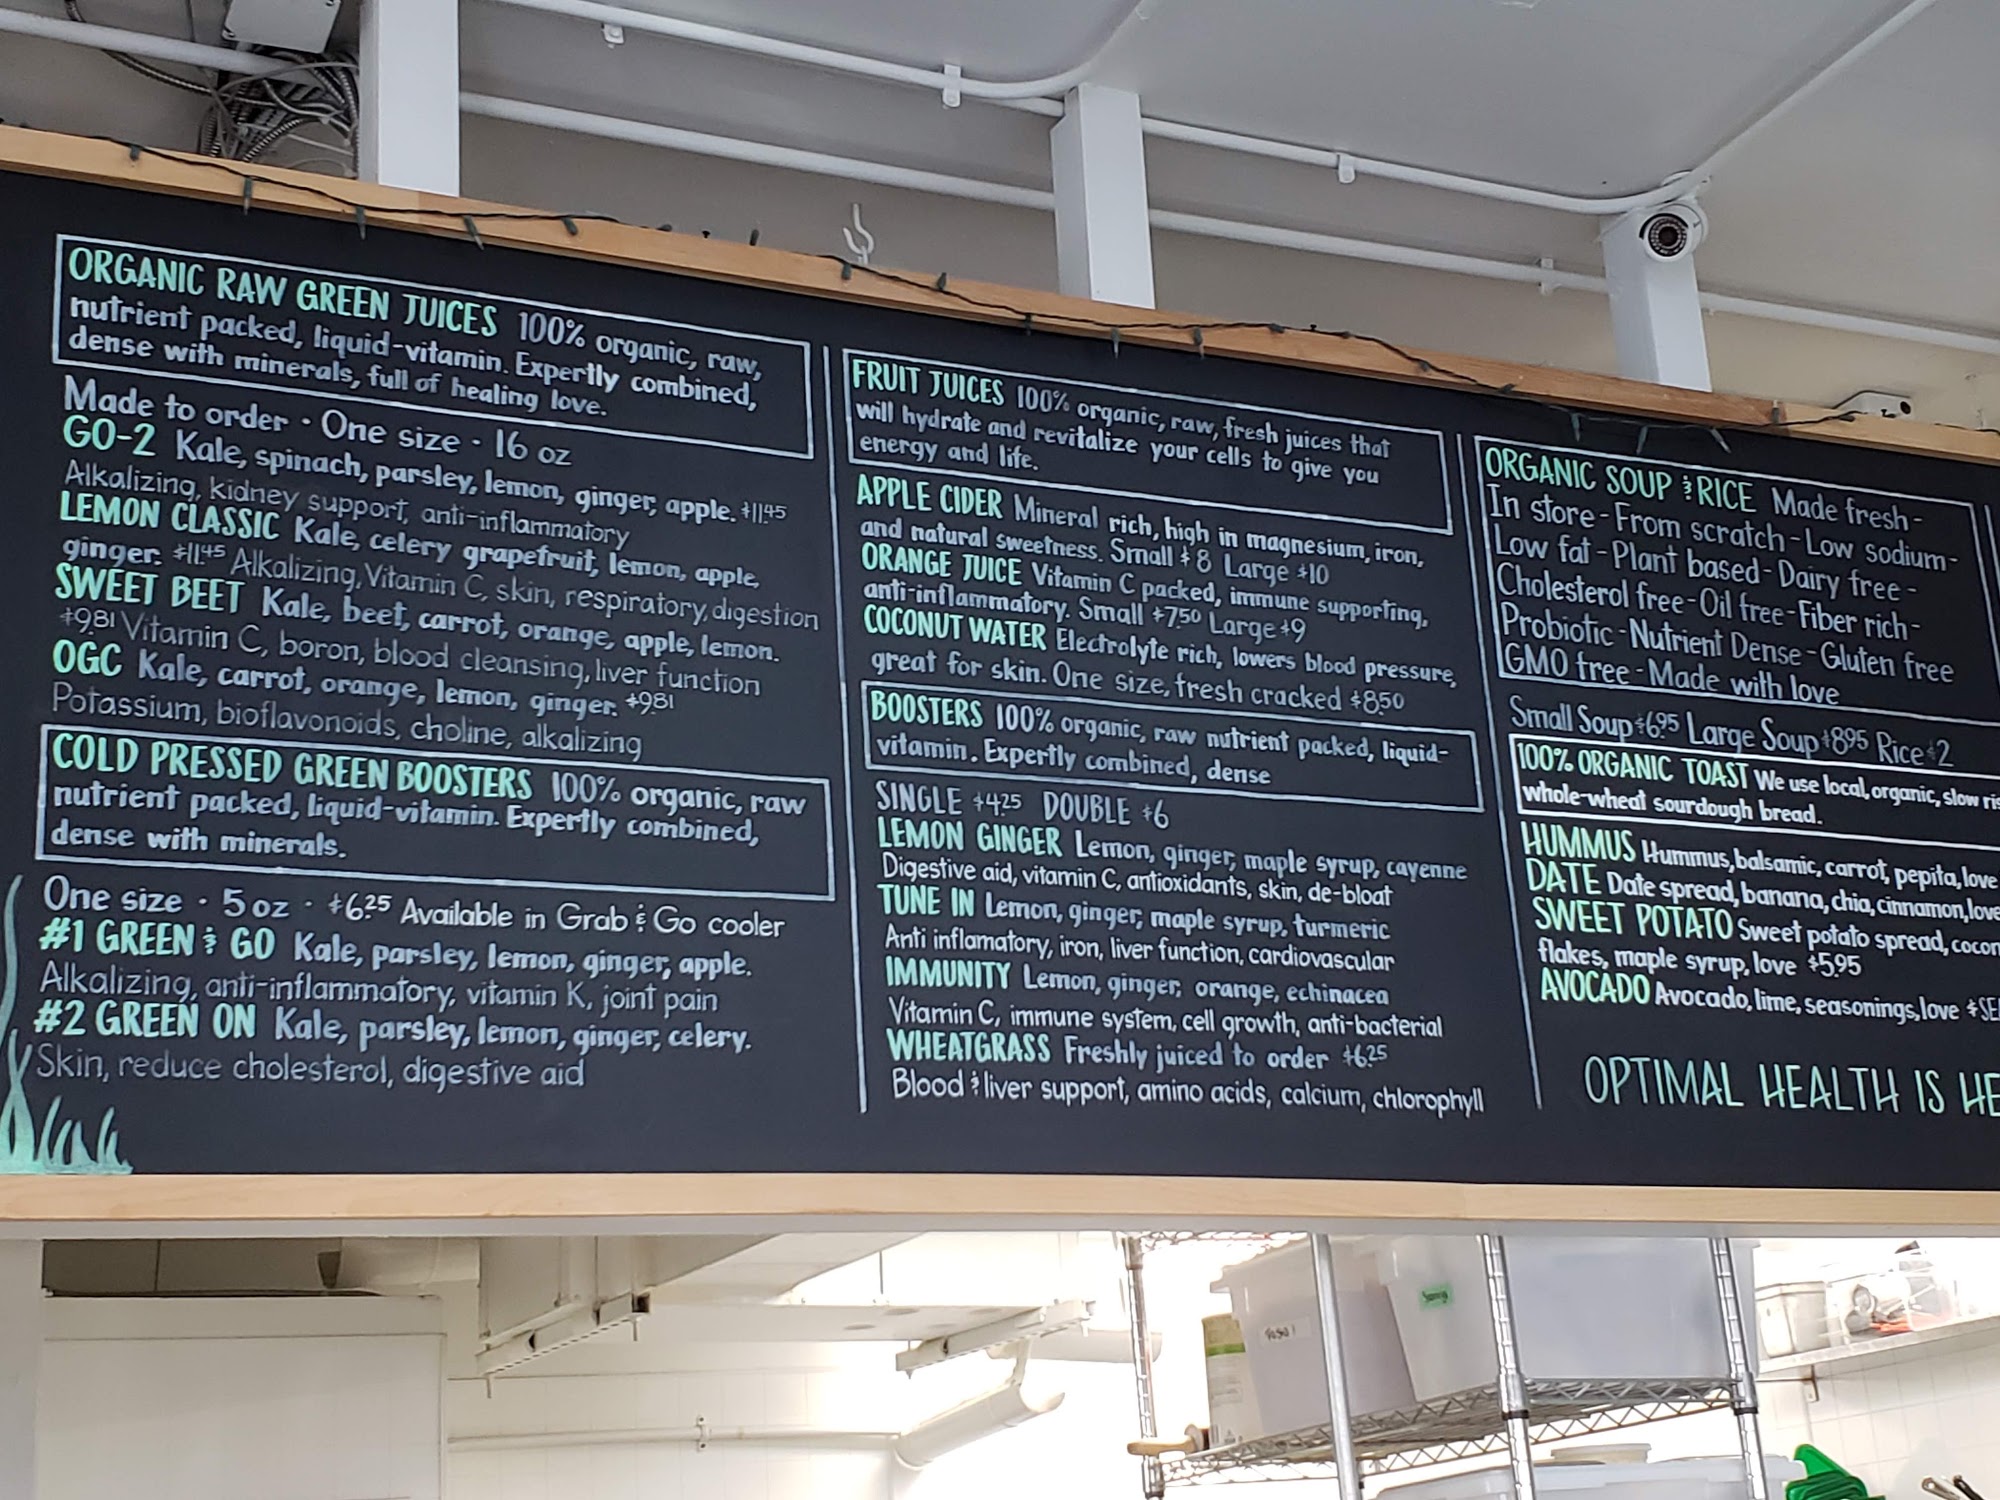 ORGANIC RAW GREEN JUICES 100% organic, raw,
nutrient packed, liquid-vitamin. Expertly combined,
dense with minerals, full of healing love.
Made to order · One size · 16 oz
GO-2 Kale, spinach, parsley, lemon, ginger, apple. $11.45
Alkalizing, kidney support, anti-inflammatory
LEMON CLASSIC Kale, celery grapefruit, lemon, apple,
ginger. $11.45 Alkalizing, Vitamin C, skin, respiratory, digestion
SWEET BEET Kale, beet, carrot, orange, apple, lemon.
$9.81 Vitamin C, boron, blood cleansing, liver function
OGC Kale, carrot, orange, lemon, ginger. $9.81
Potassium, bioflavonoids, choline, alkalizing
COLD PRESSED GREEN BOOSTERS 100% organic, raw
nutrient packed, liquid-vitamin. Expertly combined,
dense with minerals.
One size · 5 oz · $6.25 Available in Grab & Go cooler
#1 GREEN & GO Kale, parsley, lemon, ginger, apple.
Alkalizing, anti-inflammatory, vitamin K, joint pain
#2 GREEN ON Kale, parsley, lemon, ginger, celery.
Skin, reduce cholesterol, digestive aid
FRUIT JUICES 100% organic, raw, fresh juices that
will hydrate and revitalize your cells to give you
energy and life.
APPLE CIDER Mineral rich, high in magnesium, iron,
and natural sweetness. Small $8 Large $10
ORANGE JUICE Vitamin C packed, immune supporting,
anti-inflammatory. Small $7.50 Large $9
COCONUT WATER Electrolyte rich, lowers blood pressure,
great for skin. One size, fresh cracked $8.50
BOOSTERS 100% organic, raw nutrient packed, liquid-
vitamin. Expertly combined, dense
SINGLE $4.25 DOUBLE $6
LEMON GINGER Lemon, ginger, maple syrup, cayenne
Digestive aid, vitamin C, antioxidants, skin, de-bloat
TUNE IN Lemon, ginger, maple syrup, turmeric
Anti inflamatory, iron, liver function, cardiovascular
IMMUNITY Lemon, ginger, orange, echinacea
Vitamin C, immune system, cell growth, anti-bacterial
WHEATGRASS Freshly juiced to order $6.25
Blood & liver support, amino acids, calcium, chlorophyll
ORGANIC SOUP & RICE Made fresh-
In store-From scratch-Low sodium-
Low fat-Plant based-Dairy free-
Cholesterol free-Oil free-Fiber rich-
Probiotic-Nutrient Dense-Gluten free
GMO free-Made with love
Small Soup $6.95 Large Soup $8.95 Rice $2
100% ORGANIC TOAST We use local, organic, slow ris
whole-wheat sourdough bread.
HUMMUS Hummus, balsamic, carrot, pepita, love
DATE Date spread, banana, chia, cinnamon, love
SWEET POTATO Sweet potato spread, cocon
flakes, maple syrup, love $5.95
AVOCADO Avocado, lime, seasonings, love $SE
OPTIMAL HEALTH IS HE